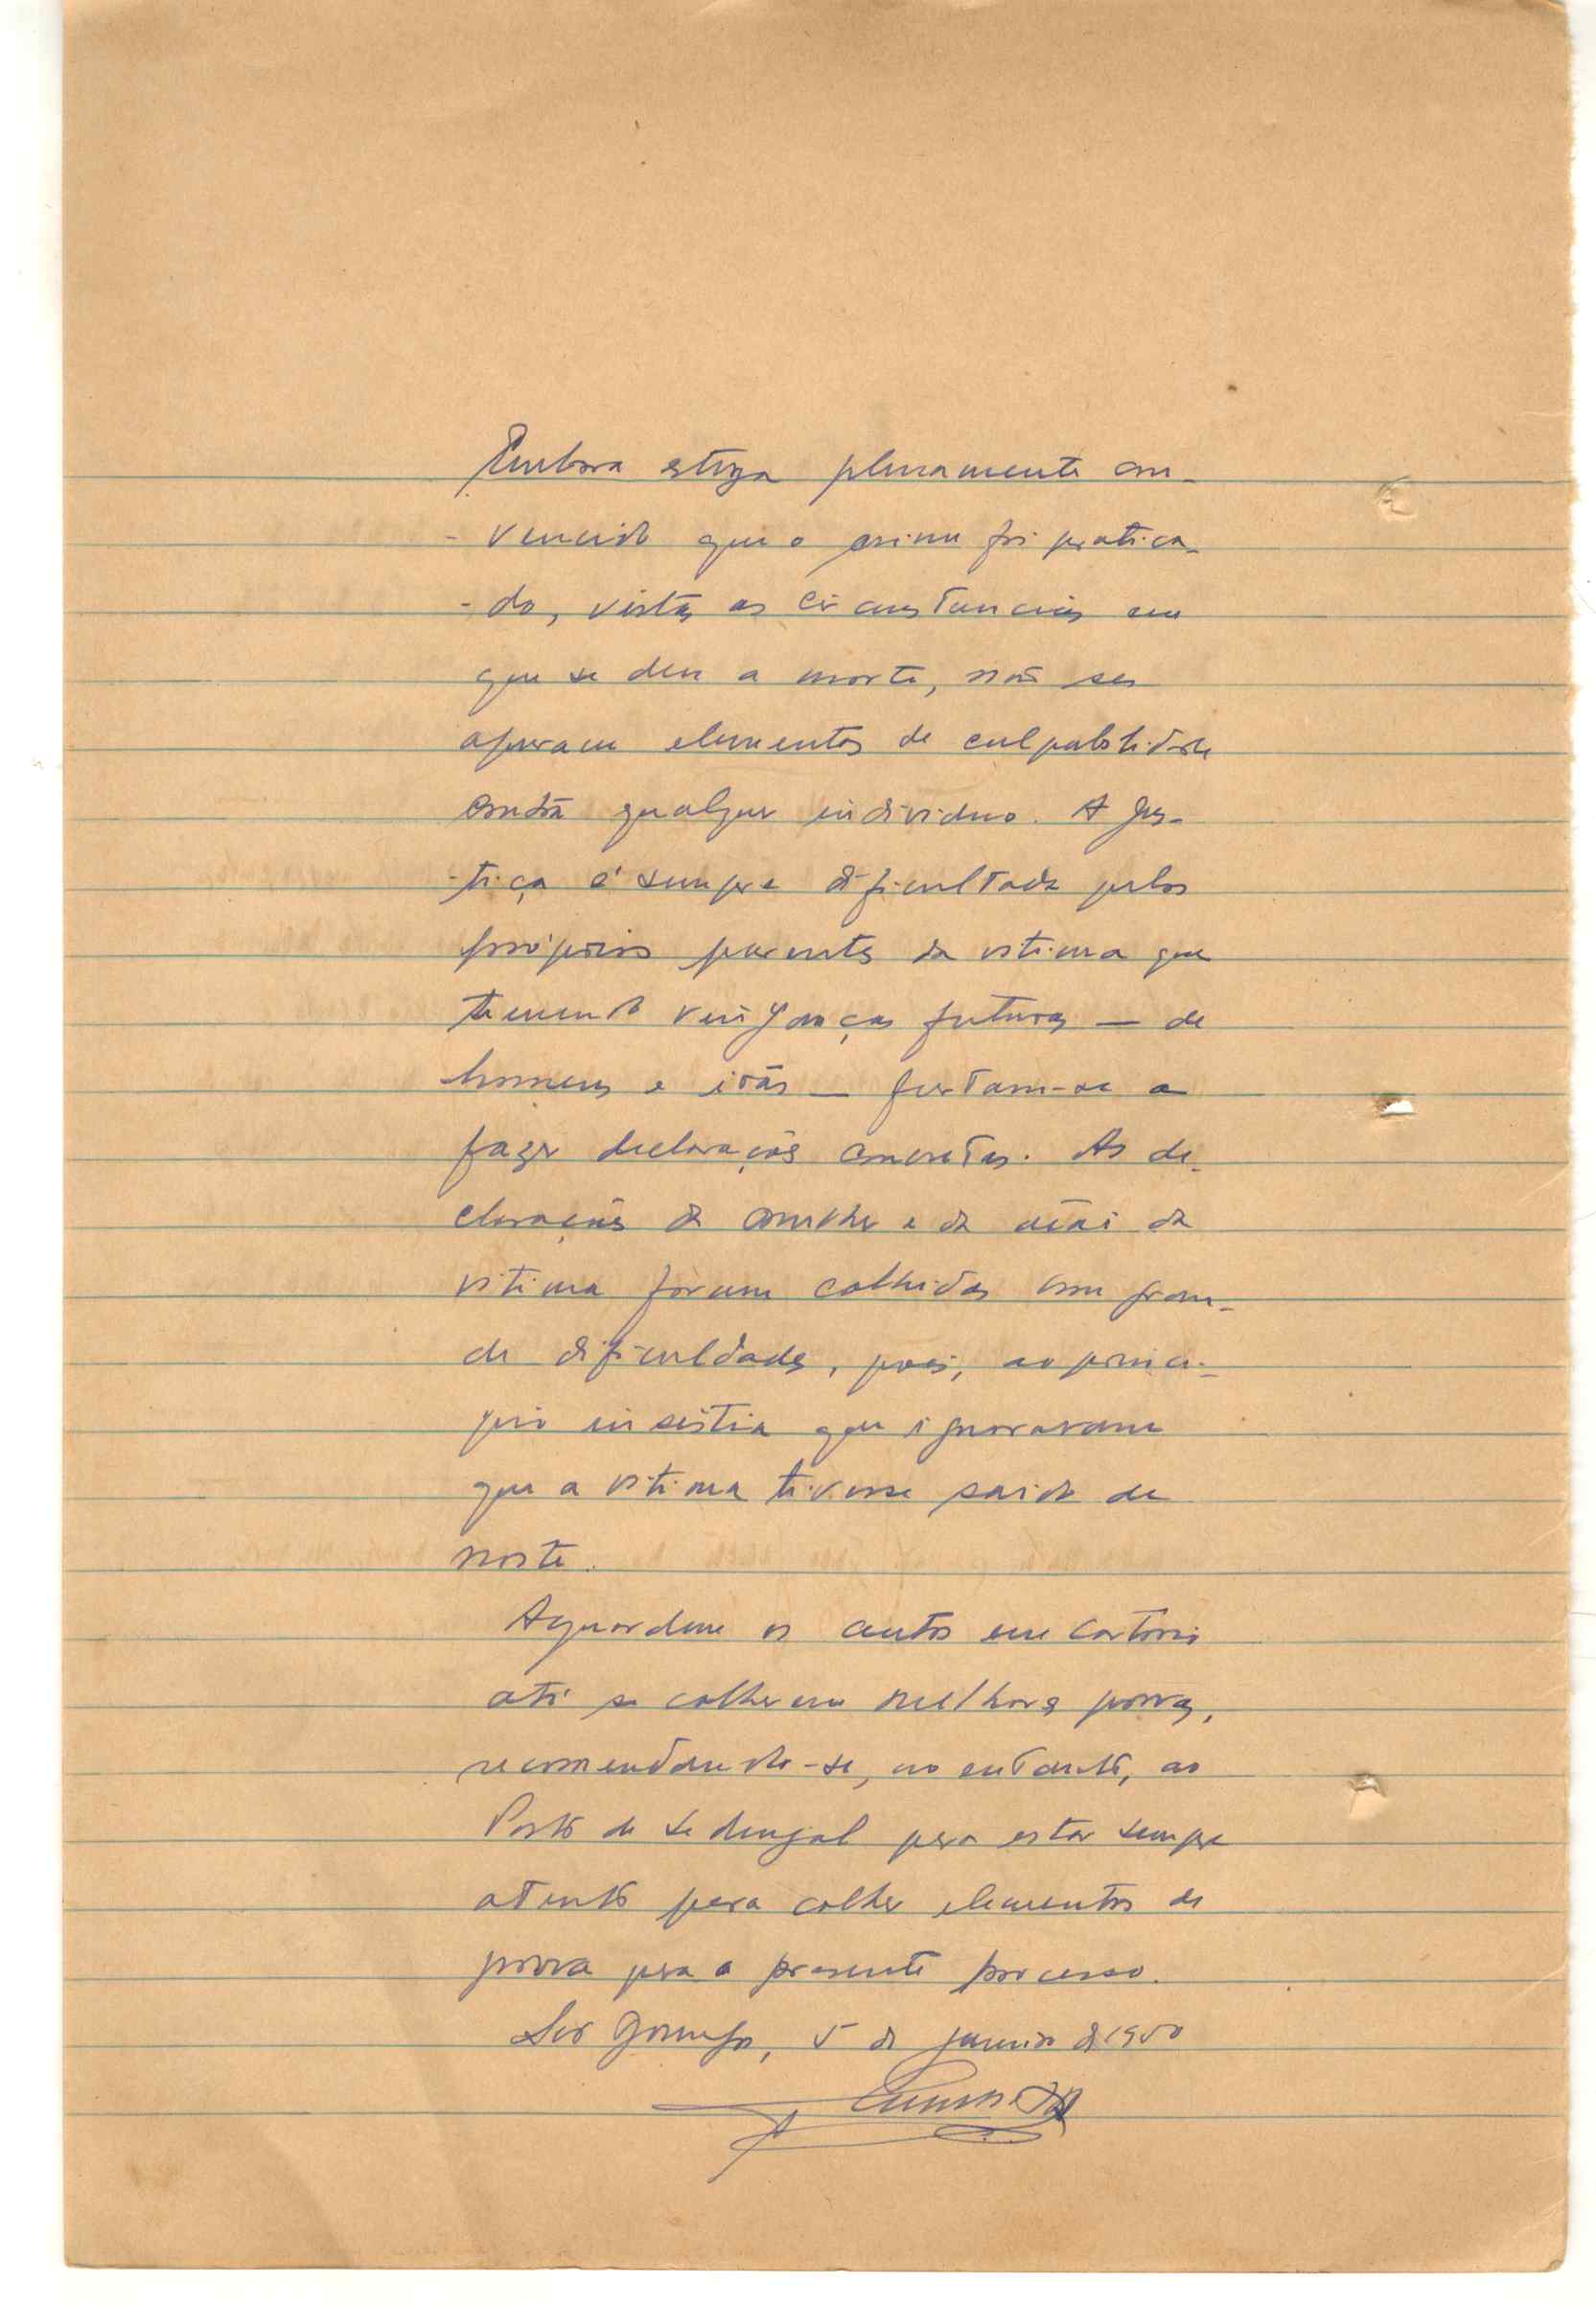 Embora esteja plenamente con-
- vencido que o crime foi pratica-
- do, vistas as circunstancias em
que se deu a morte, não se
apuram elementos de culpabilidade
contra qualquer individuo. A Jus-
- tiça é sempre dificultada pelos
próprios parentes da vitima que
temendo vinganças futuras — de
homens e irãs — furtam-se a
fazer declarações concretas. As de-
clarações da mulher e da mãi da
vitima foram colhidas com gran-
de dificuldades, pois, ao princi-
pio insistia que ignoravam
que a vitima tivesse saido de
noite.
Aguardem os autos em cartorio
até se colherem melhores provas,
recomendando-se, no entanto, ao
Posto de Sedengal para estar sempre
atento para colher elementos de
prova para o presente processo.
São Domingos, 5 de de 1950